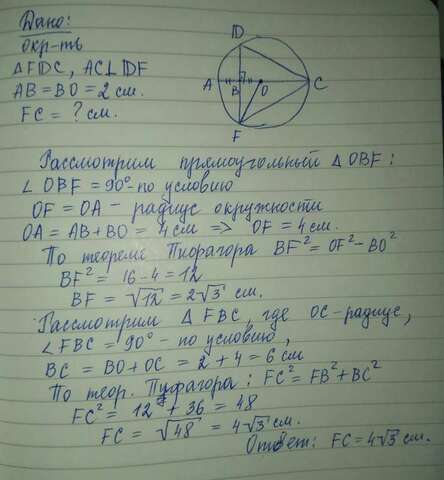 Дано:
окр-ть
△FDC, AC⊥DF
AB = BO = 2 см.
FC = ? см.
D
A
B
O
C
F
Рассмотрим прямоугольный △OBF:
∠OBF = 90° - по условию
OF = OA - радиус окружности
OA = AB + BO = 4 см => OF = 4 см.
По теореме Пифагора BF² = OF² - BO²
BF² = 16 - 4 = 12
BF = √12 = 2√3 см.
Рассмотрим △FBC, где OC - радиус,
∠FBC = 90° - по условию,
BC = BO + OC = 2 + 4 = 6 см
По теор. Пифагора: FC² = FB² + BC²
FC² = 12 + 36 = 48
FC = √48 = 4√3 см.
Ответ: FC = 4√3 см.